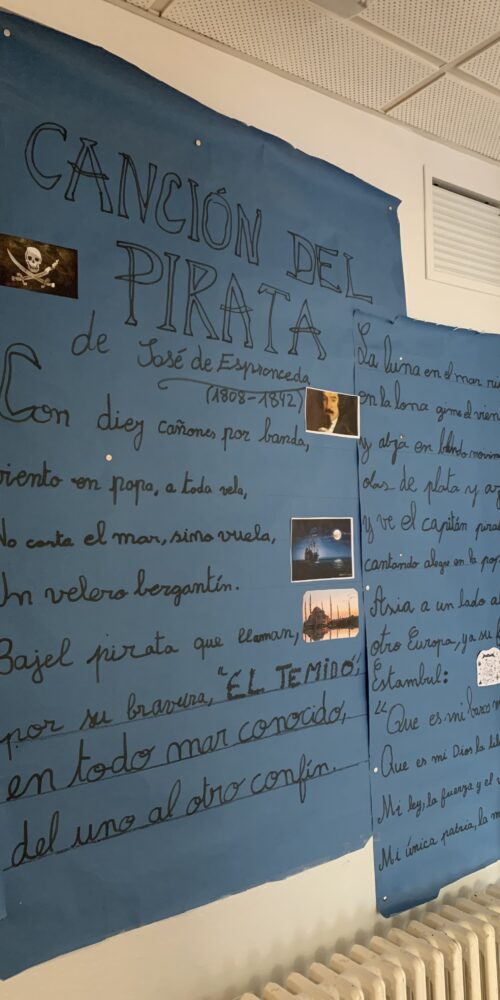 CANCIÓN DEL
PIRATA
de José de Espronceda
(1808-1842)
Con diez cañones por banda,
viento en popa, a toda vela,
No corta el mar, sino vuela,
Un velero bergantín.
Bajel pirata que llaman,
por su bravura, "EL TEMIDO",
en todo mar conocido,
del uno al otro confín.
La luna en el mar
en la lona gime el vien
y alza en blando movim
olas de plata y az
y ve el capitán pirat
cantando alegre en la pop
Asia a un lado, al
otro Europa, ya su f
Estambul:
"Que es mi barco m
Que es mi Dios la lib
Mi ley, la fuerza y el v
Mi única patria, la m